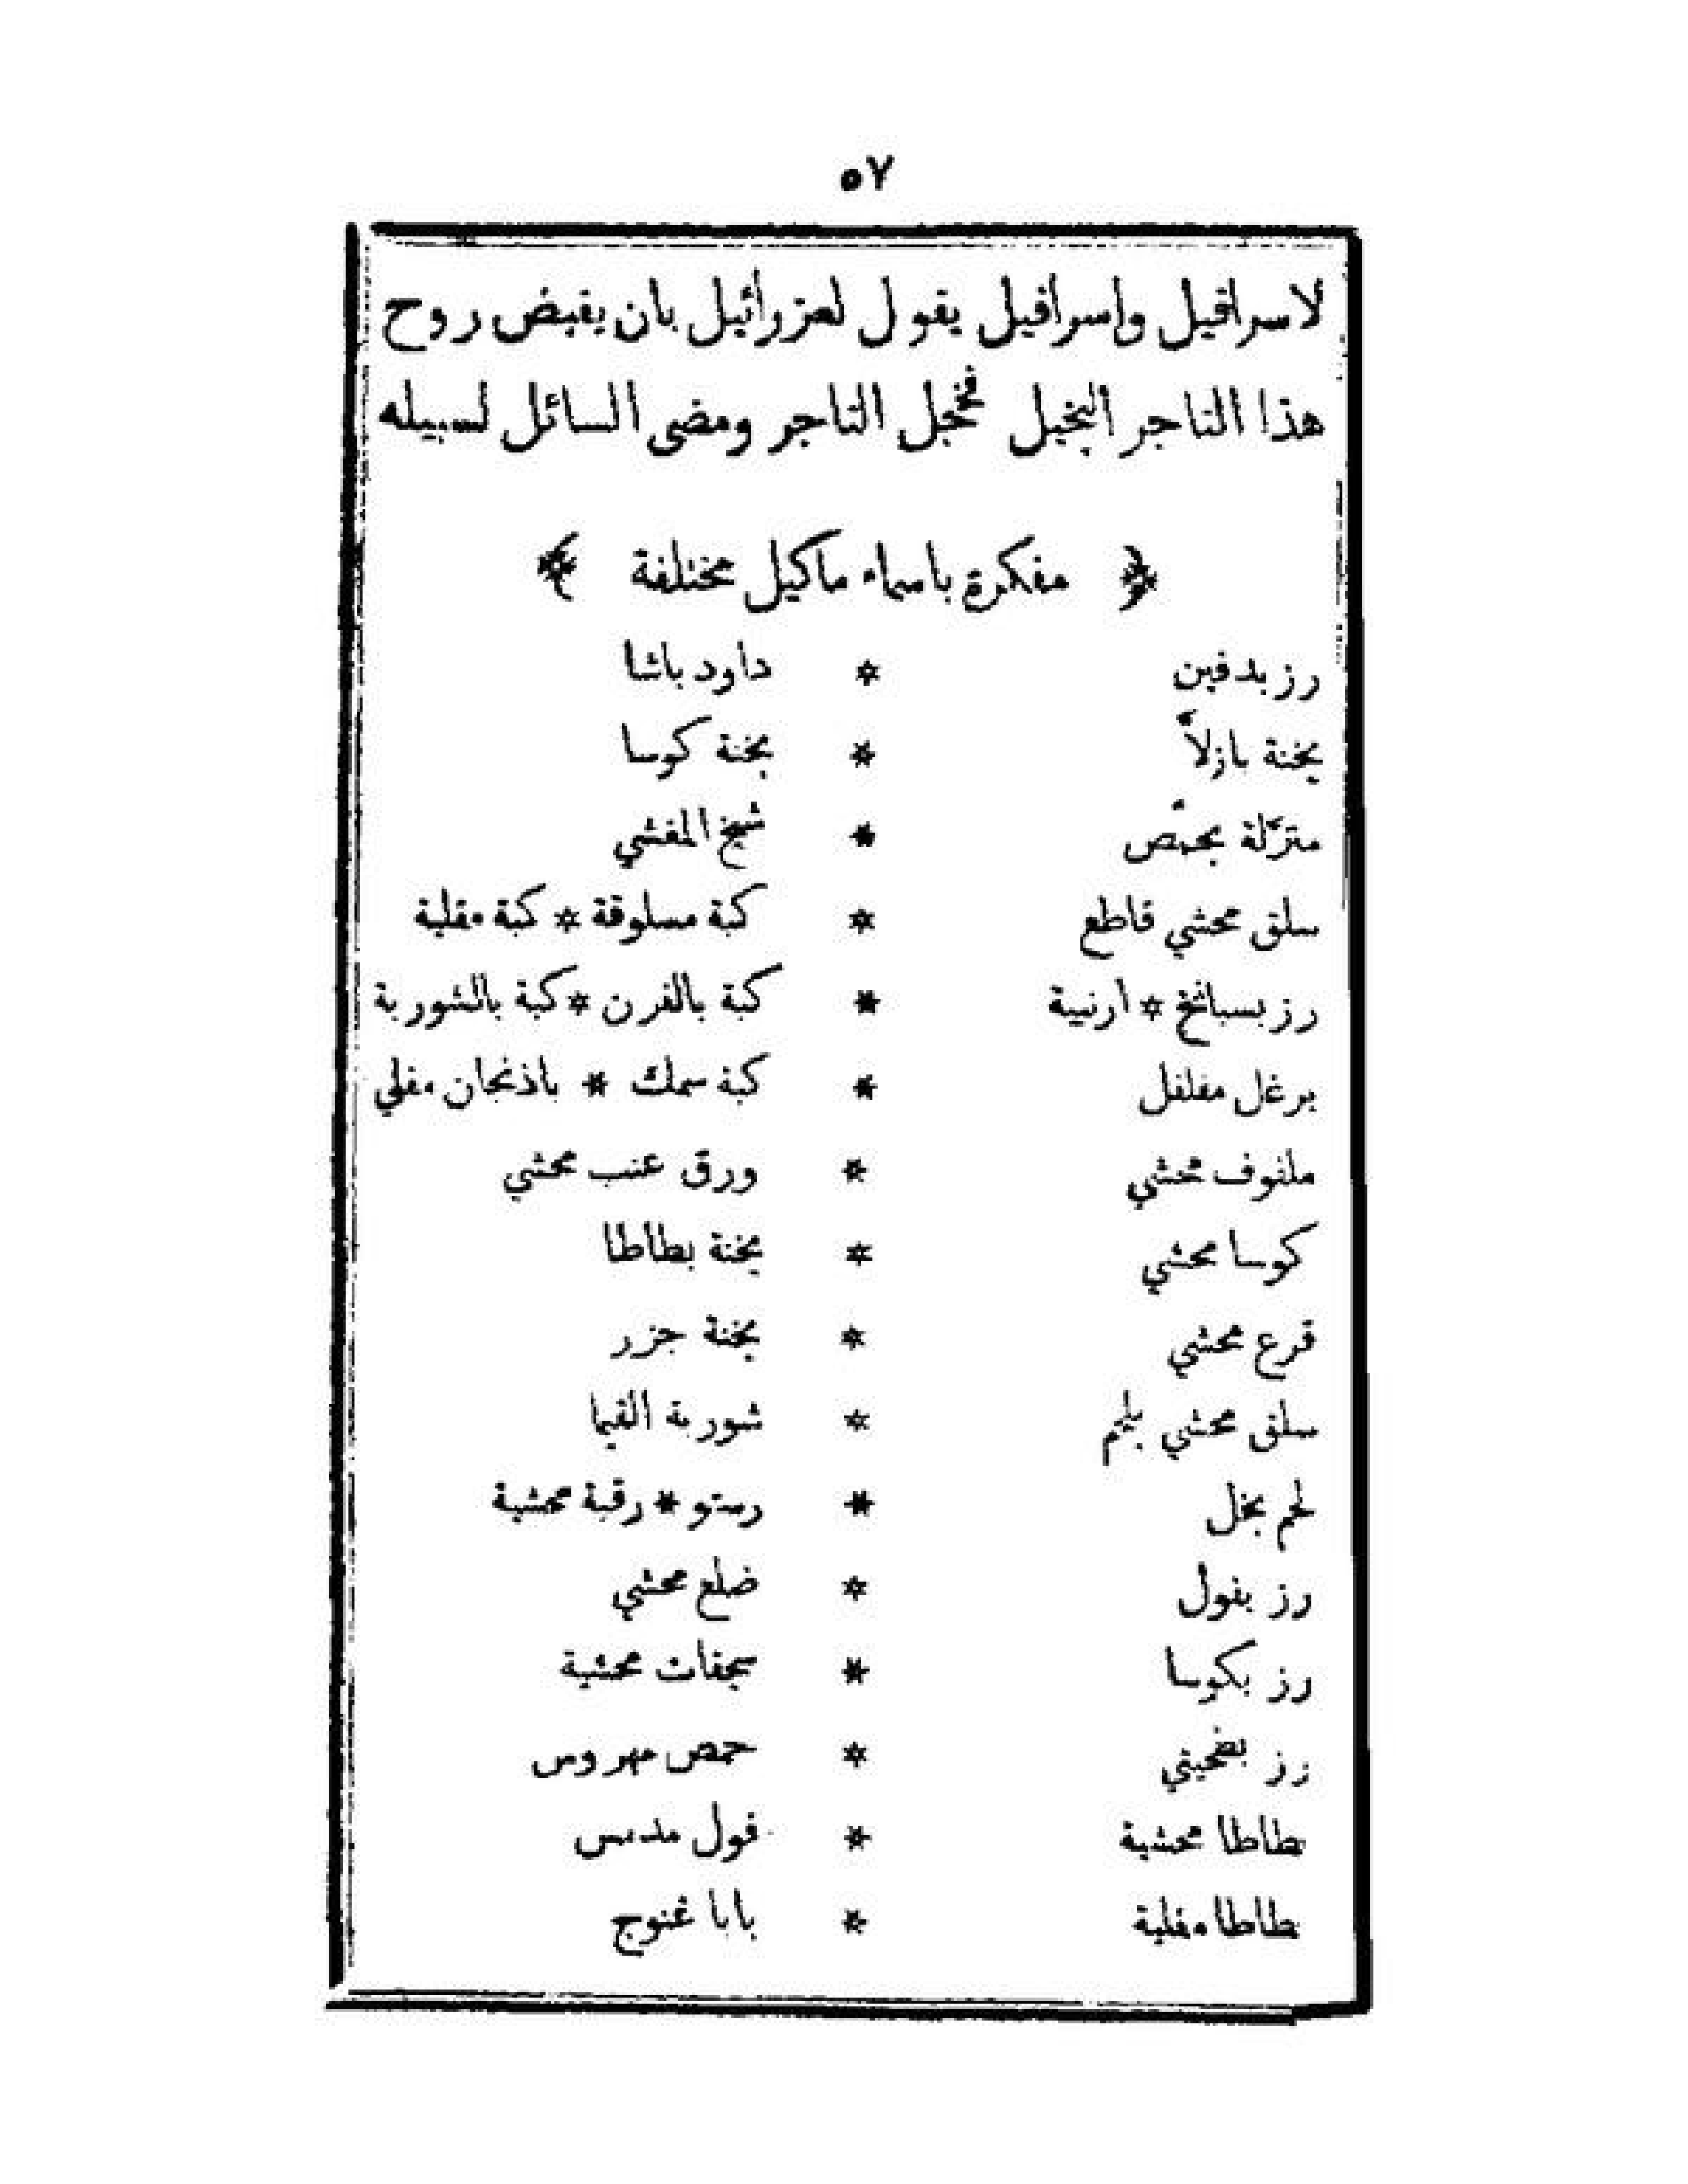 ٥٧
لاسرافيل واسرافيل يقول لعزرائيل بان يقبض روح
هذا التاجر البخيل فخجل التاجر ومضى السائل لسبيله
﴿ مفكرة باسماء ماكيل مختلفة ﴾
رز بدفين * داود باشا
يخنة بازلاّ * يخنة كوسا
متزّلة بحمّص * شيخ المغشي
سلق محشي قاطع * كبة مسلوقة * كبة مقلية
رز بسبانخ * ارنبية * كبة بالفرن * كبة بالشوربة
برغل مفلفل * كبة سمك * باذنجان مقلي
ملفوف محشي * ورق عنب محشي
كوسا محشي * يخنة بطاطا
قرع محشي * يخنة جزر
سلق محشي بلحم * شوربة القيما
لحم بخل * رستو * رقبة محشية
رز بفول * ضلع محشي
رز بكوسا * سجقات محشية
رز * حمص مهروس
بطاطا محشية * فول مدمس
بطاطا مقلية * بابا غنوج